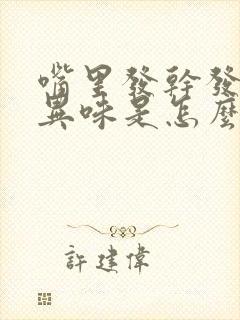 嘴里發幹發
異味是怎麼
許建偉